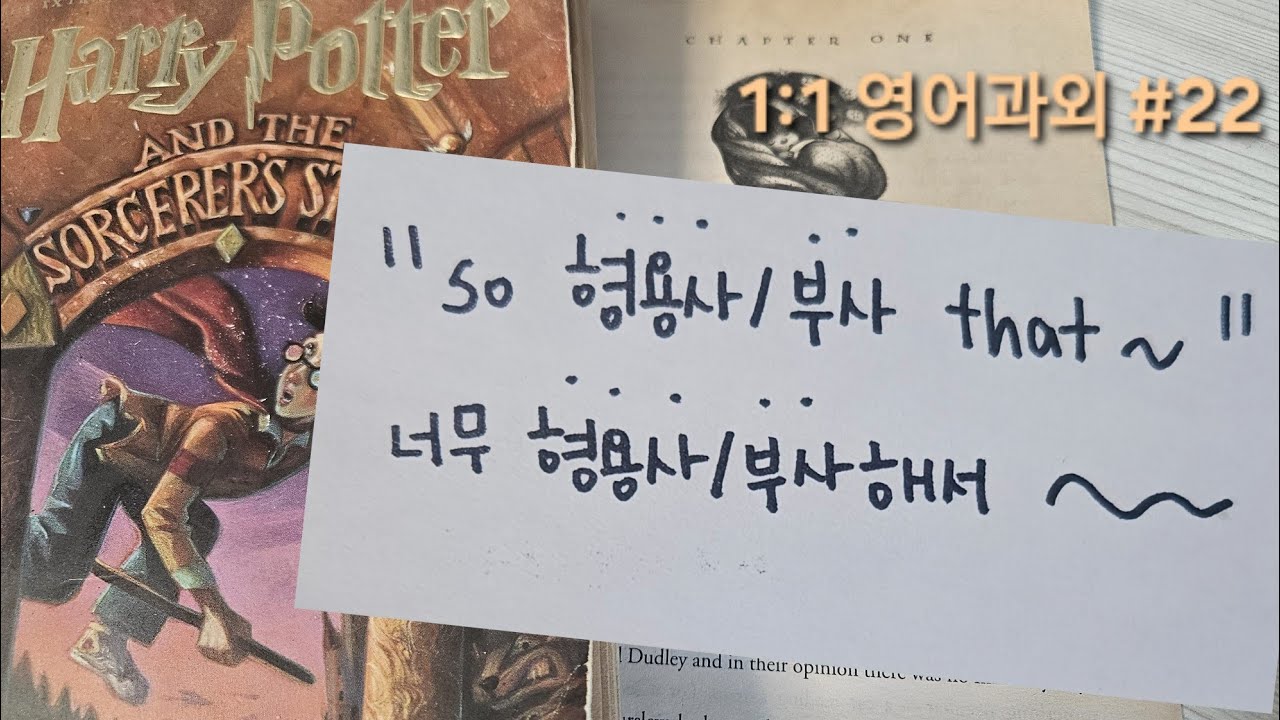 Harry Potter
AND THE
SORCERER'S
CHAPTER ONE
1:1 영어과외 #22
"so 형용사/부사 that ~"
너무 형용사/부사해서 ~
! Dudley and in their opinion there was no